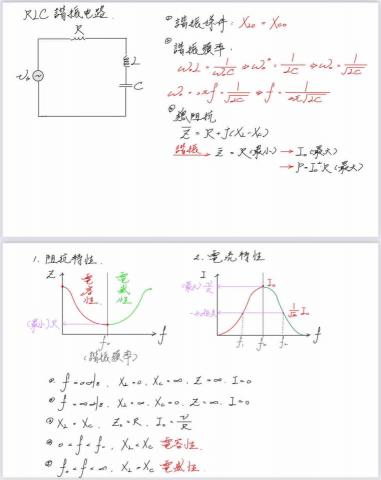 RLC 諧振电路.
R
L
C
① 諧振條件: X_L0 = X_C0
② 諧振頻率.
ω₀L = 1/ω₀C ⇒ ω₀² = 1/LC ⇒ ω₀ = 1/√LC
ω₀ = 2πf = 1/√LC ⇒ f = 1/2π√LC
③ 總阻抗
Z̄ = R + j(X_L - X_C)
諧振 → Z = R (最小) → I₀ (最大)
→ P = I₀²R (最大)
1. 阻抗特性.
Z
電容性.
電感性.
(最小) R
f₀
f
(諧振頻率)
2. 電流特性
I
(最大)
I₀
1/√2 I₀
f₁ f₀ f₂
f
① f = 0Hz, X_L = 0, X_C = ∞, Z = ∞, I = 0
② f = ∞Hz, X_L = ∞, X_C = 0, Z = ∞, I = 0
③ X_L = X_C, Z₀ = R, I₀ = V/R
④ 0 < f < f₀, X_L < X_C 電容性.
⑤ f₀ < f < ∞, X_L > X_C 電感性.